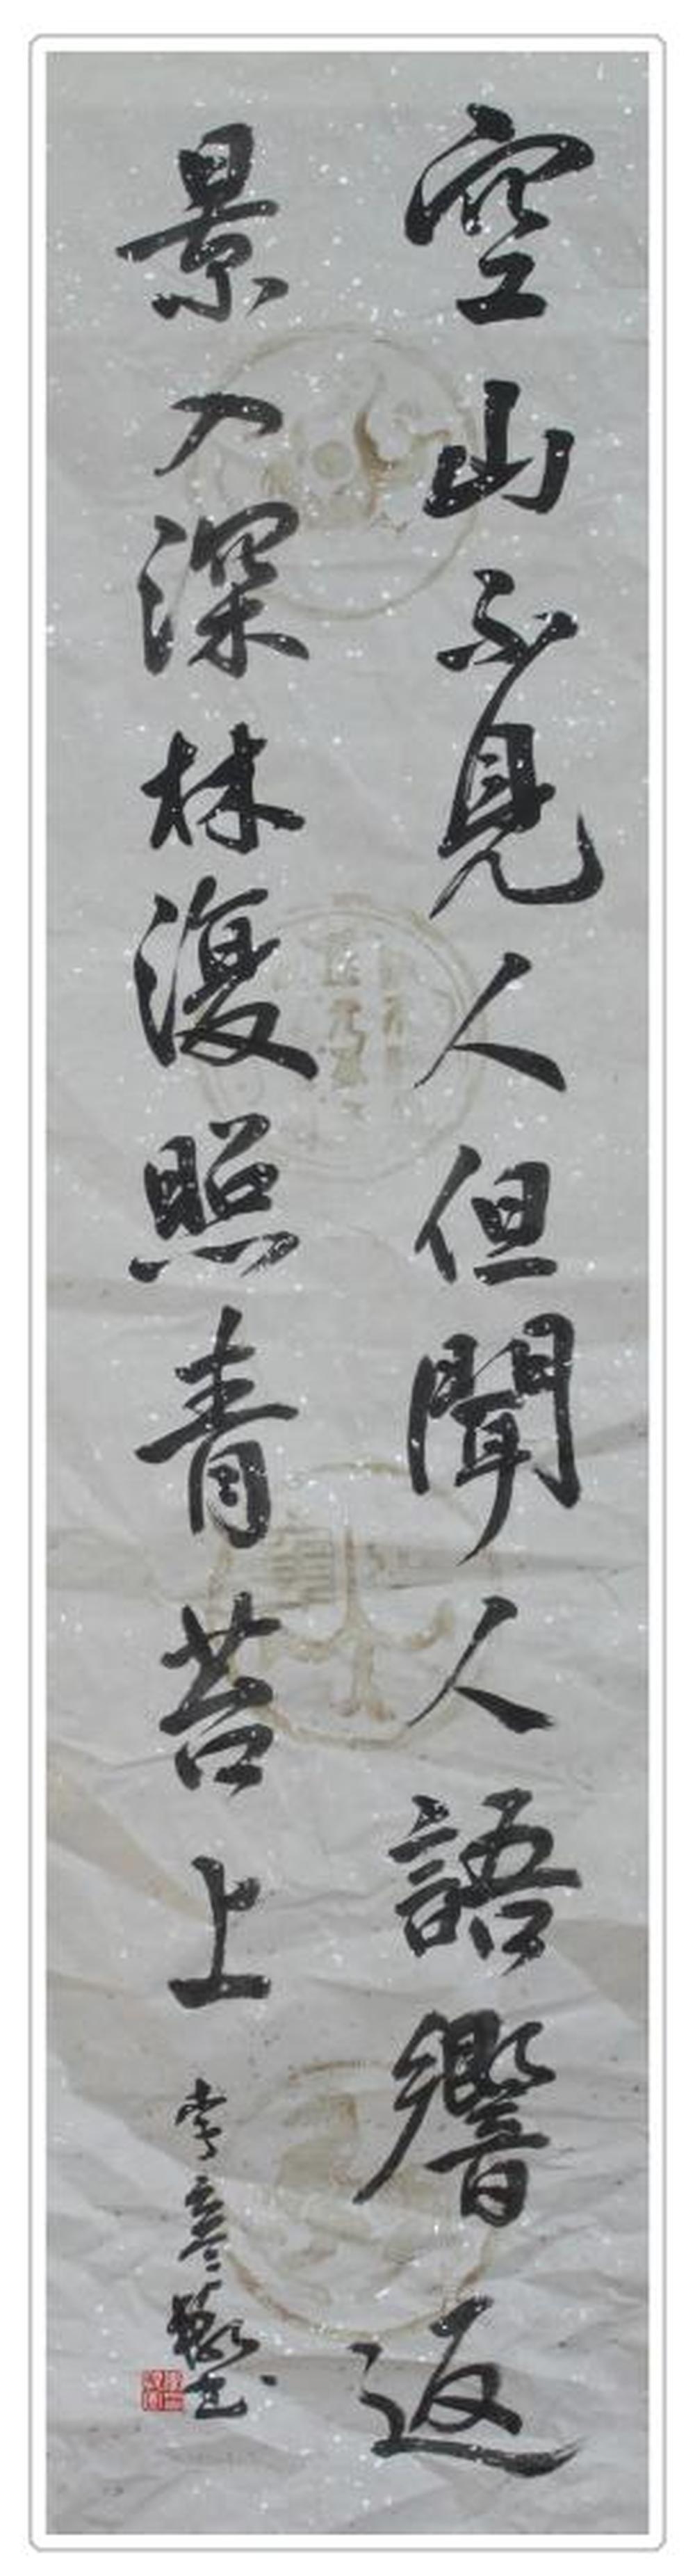 空山不見人但聞人語響返
景入深林復照青苔上
李